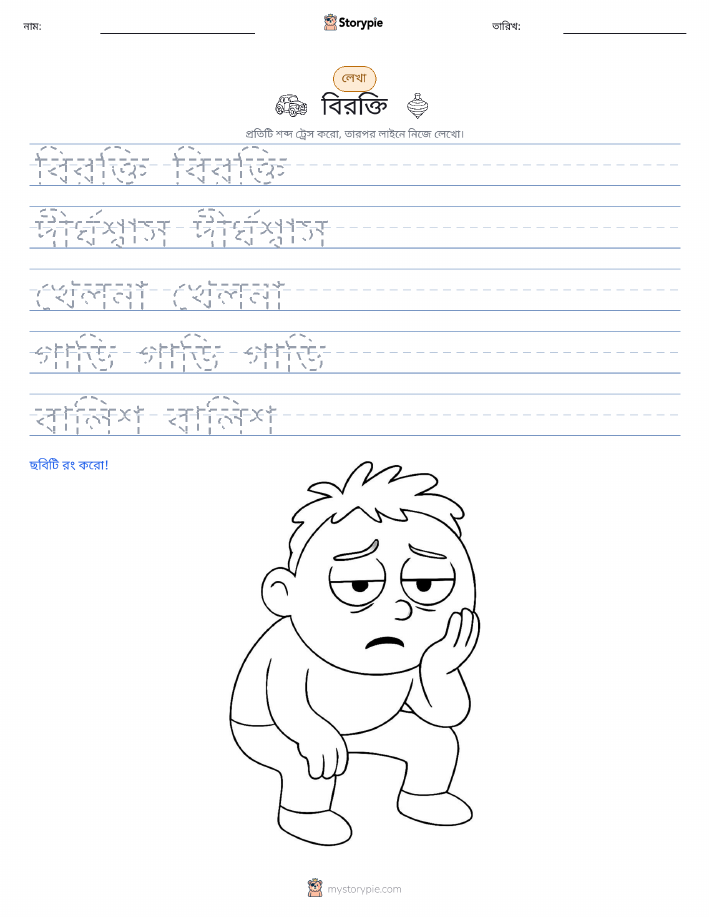 নাম:
Storypie
তারিখ:
লেখা
বিরক্তি
প্রতিটি শব্দ ট্রেস করো, তারপর লাইনে নিজে লেখো।
বিরক্তি বিরক্তি
দীর্ঘশ্বাস দীর্ঘশ্বাস
খেলনা খেলনা
গাড়ি গাড়ি গাড়ি
বালিশ বালিশ
ছবিটি রং করো!
mystorypie.com